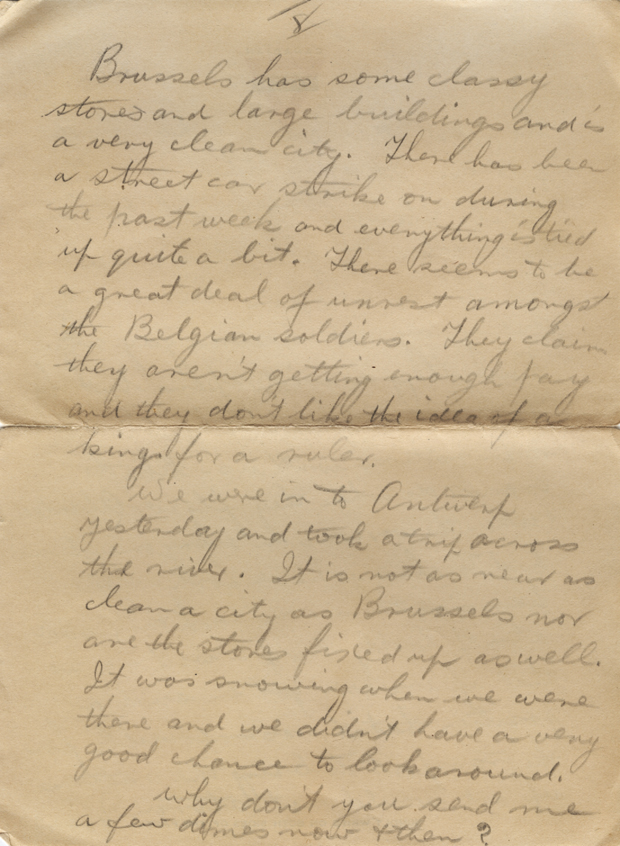 8
Brussels has some classy
stores and large buildings and is
a very clean city. There has been
a street car strike on during
the past week and everything is tied
up quite a bit. There seems to be
a great deal of unrest amongst
the Belgian soldiers. They claim
they aren't getting enough pay
and they don't like the idea of a
king for a ruler.
We were in to Antwerp
yesterday and took a trip across
the river. It is not as near as
clean a city as Brussels nor
are the stores fixed up as well.
It was snowing when we were
there and we didn't have a very
good chance to look around.
Why don't you send me
a few dimes now & then?